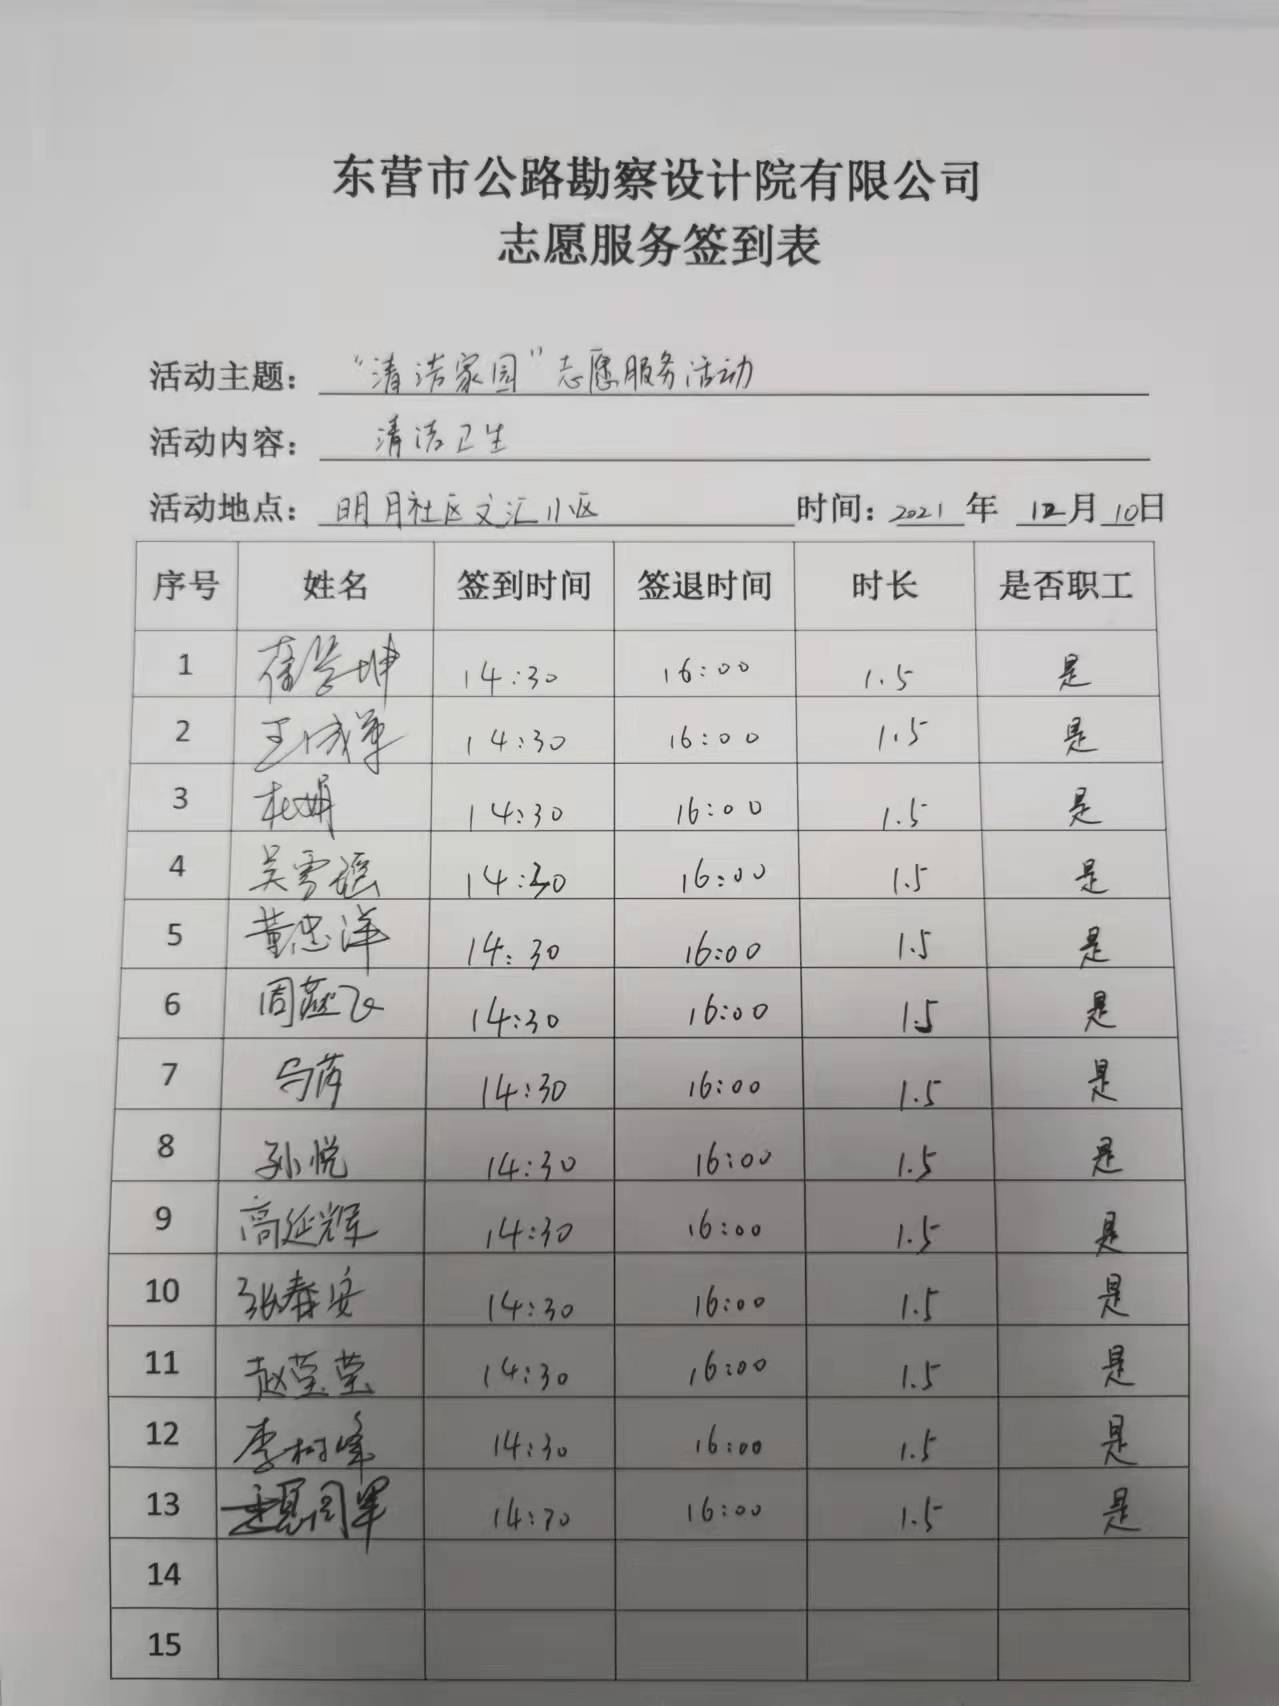 东营市公路勘察设计院有限公司
志愿服务签到表
活动主题： “清洁家园”志愿服务活动
活动内容： 清洁卫生
活动地点： 明月社区文汇小区 时间：2021年 12月10日
序号 姓名 签到时间 签退时间 时长 是否职工
1 14:30 16:00 1.5 是
2 王成军 14:30 16:00 1.5 是
3 杜娟 14:30 16:00 1.5 是
4 吴雪瑶 14:30 16:00 1.5 是
5 董忠洋 14:30 16:00 1.5 是
6 周燕飞 14:30 16:00 1.5 是
7 14:30 16:00 1.5 是
8 孙悦 14:30 16:00 1.5 是
9 高延辉 14:30 16:00 1.5 是
10 张春安 14:30 16:00 1.5 是
11 赵莹莹 14:30 16:00 1.5 是
12 李树峰 14:30 16:00 1.5 是
13 14:30 16:00 1.5 是
14
15